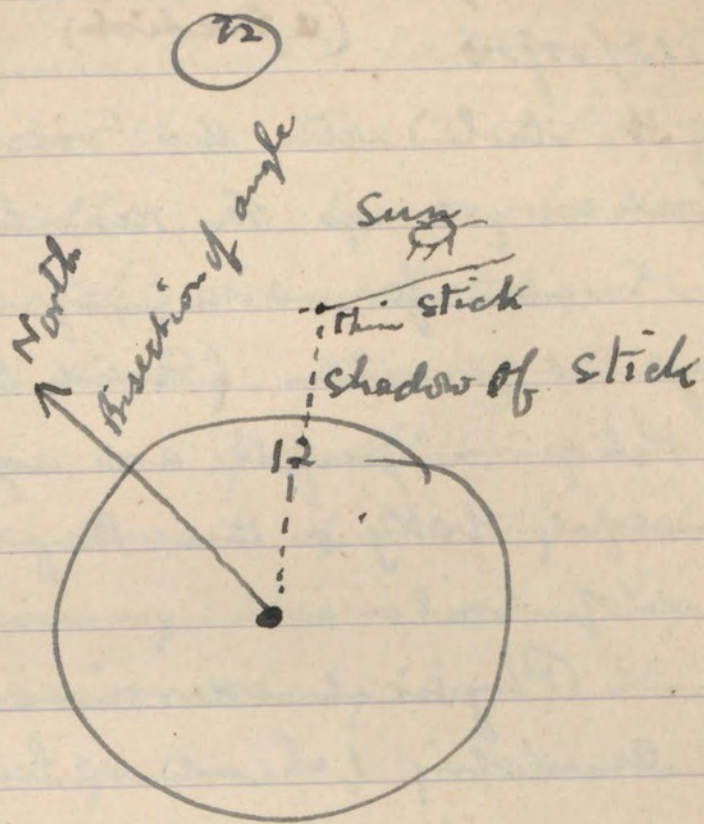 22
North
Bisection of angle
Sun
thin stick
Shadow of stick
12